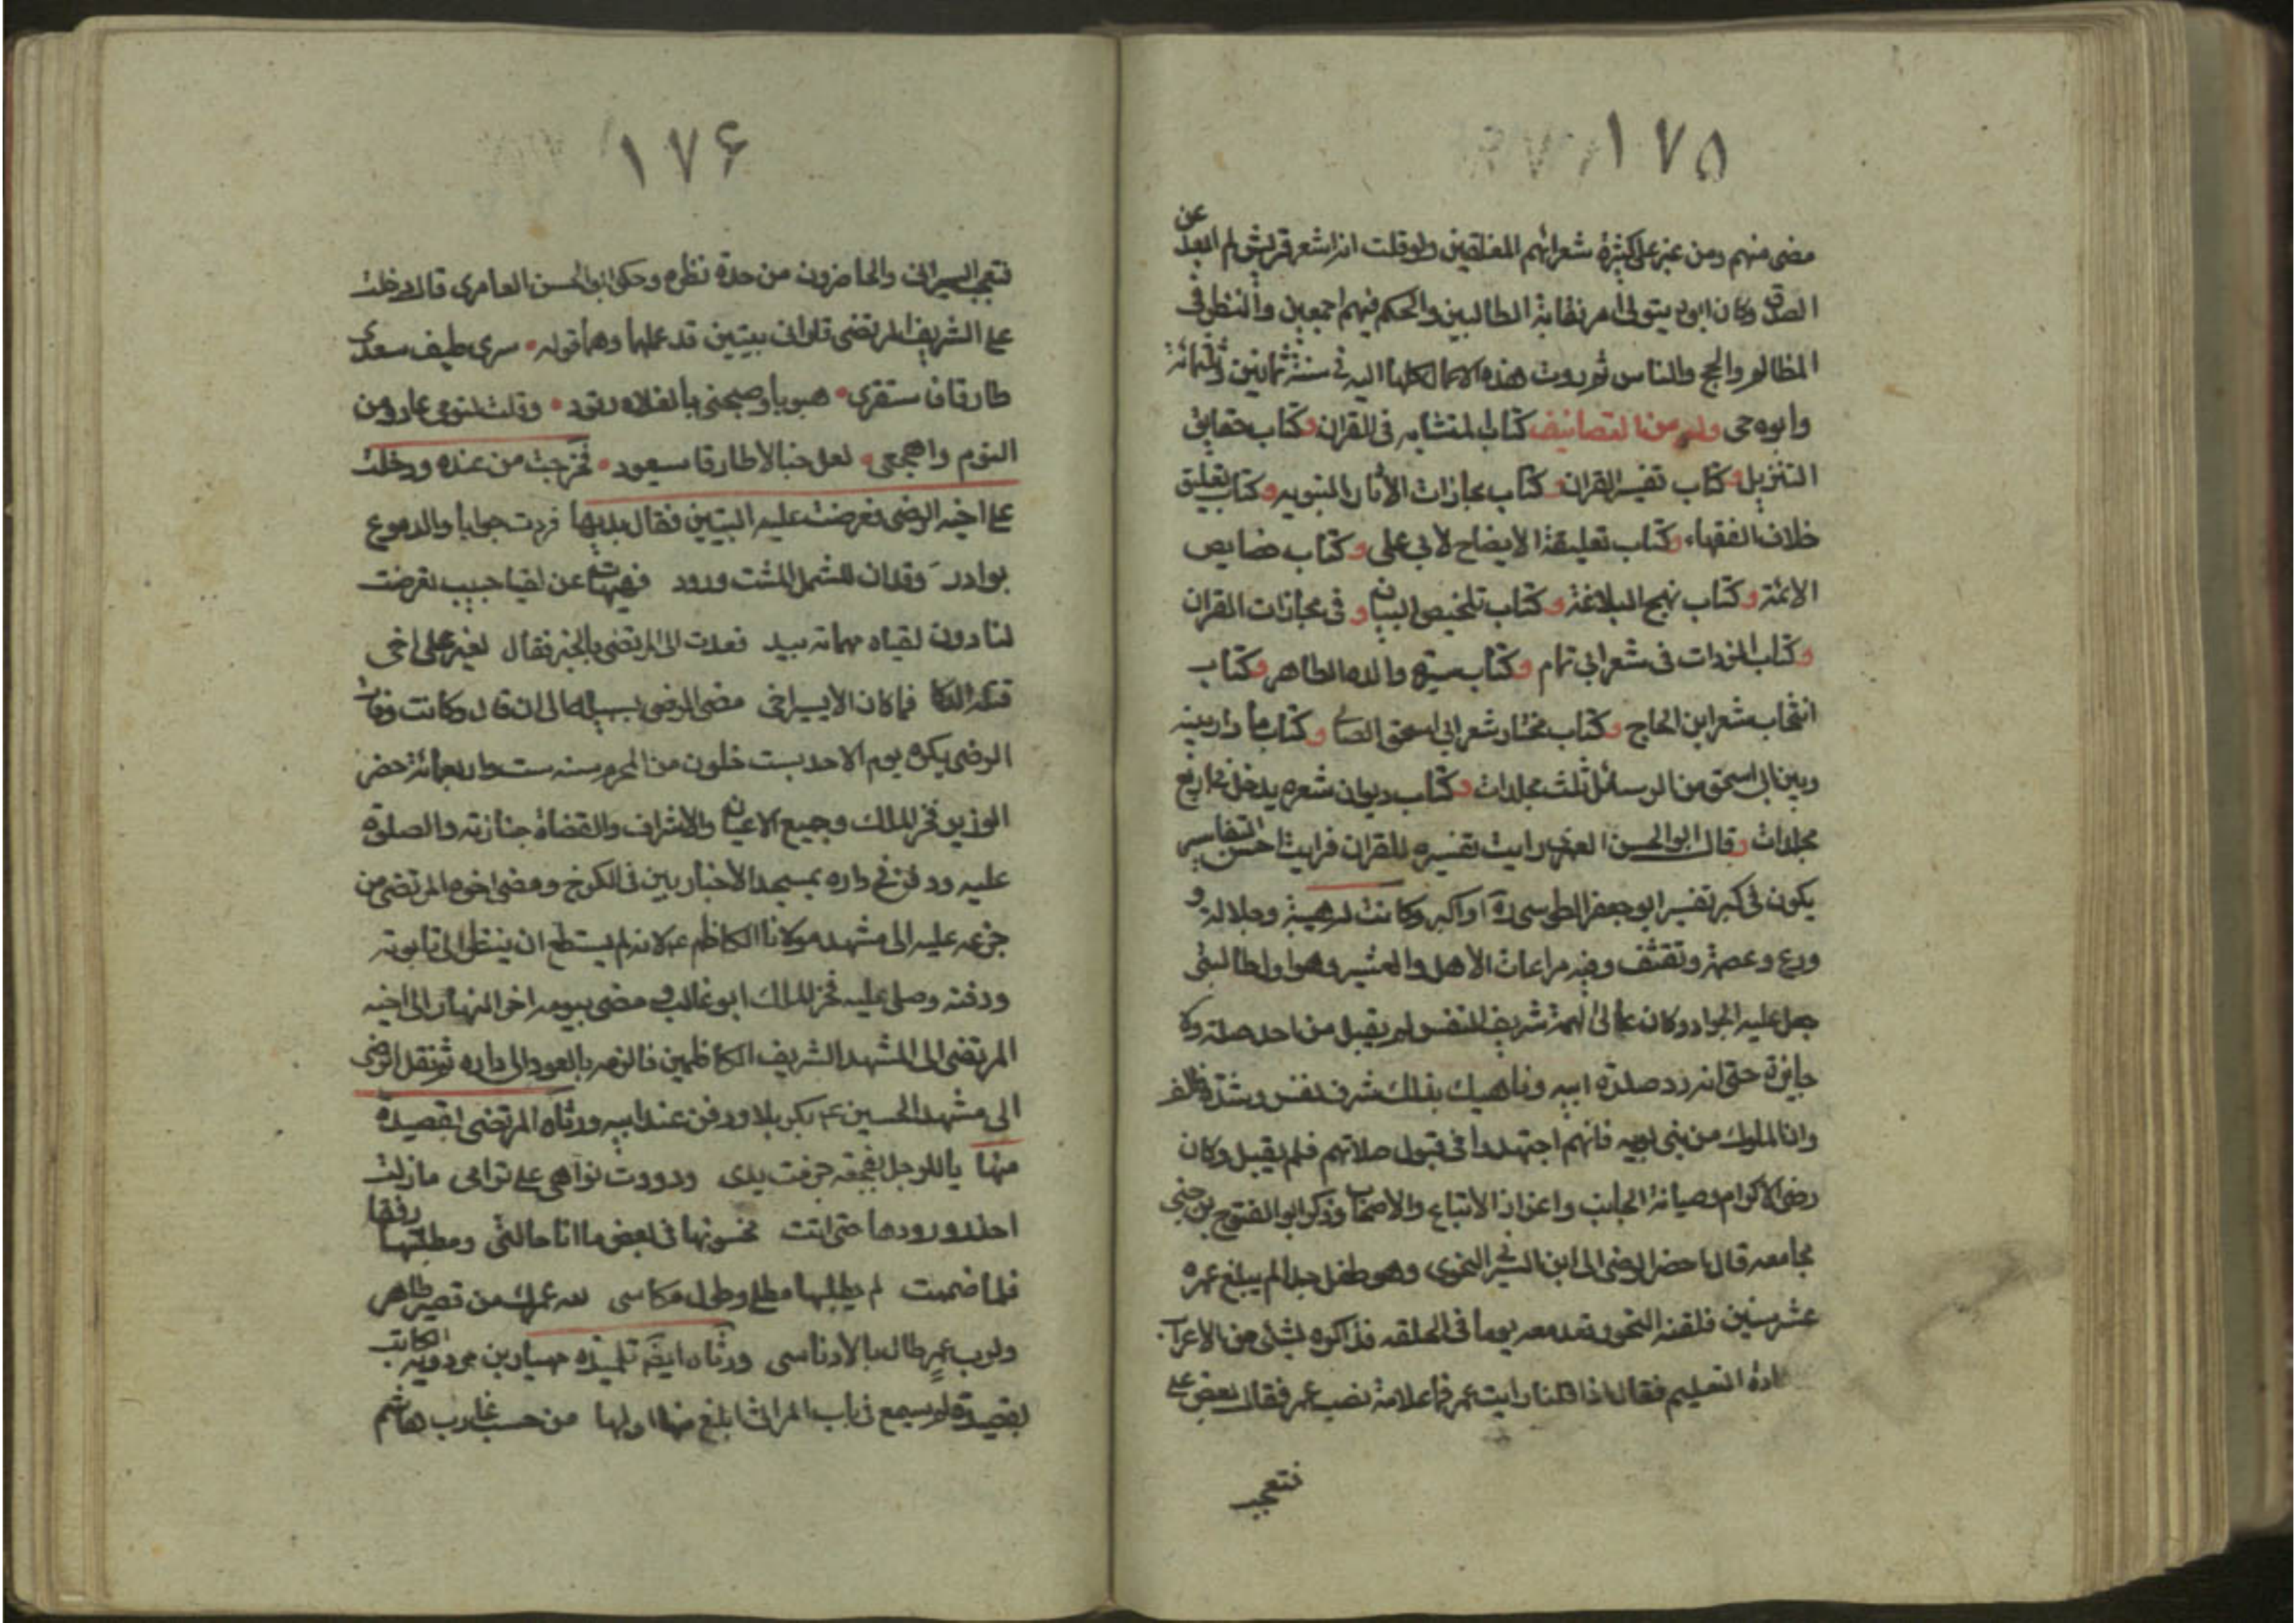 ١٧٥
مضى منهم ومن غبر على كثرة شعرائهم المفلقين ولو قلت انه اشعر قريش لم ابعد عن
الصدق وكان ابوه يتولى امر نقابة الطالبين والحكم فيهم اجمعين والنظر فى
المظالم والحج والناس ثم ردت هذه الاعمال كلها اليه فى سنة ثمانين وثلثمائة
وابوه حى وله من التصانيف كتاب المتشابه فى القران وكتاب حقايق
التنزيل وكتاب تفسير القران وكتاب مجازات الأثار النبويه وكتاب تعليق
خلاف الفقهاء وكتاب تعليقة الايضاح لأبي على وكتاب خصايص
الائمة وكتاب نهج البلاغة وكتاب تلخيص البيان و فى مجازات القران
وكتاب الزيادات فى شعر ابى تمام وكتاب سيرة والده الطاهر وكتاب
انتخاب شعر ابن الحاج وكتاب مختار شعر ابى اسحق الصابى وكتاب ما دار بينه
وبين ابى اسحق من الرسائل ثلث مجلدات وكتاب ديوان شعره يدخل فى اربع
مجلدات وقال ابو الحسن العمرى رايت تفسيره للقران فرايت احسن التفاسير
يكون فى كبر تفسير ابو جعفر الطوسى ره او اكبر وكانت له هيبة وجلالة و
ورع وعصمة وتقشف وفيه مراعات الأهل والعشيره وهو اول طالبى
جعل عليه الجواد وكان عالى الهمة شريف النفس لم يقبل من احد صلة ولا
جايزة حتى انه رد صلة ابيه وناهيك بذلك شرف نفس وشدة ظلف
وان الملوك من بنى بويه فانهم اجتهدوا فى قبول صلاتهم فلم يقبل وكان
رضى الاكرام وصيانة الجانب واعزاز الأتباع والأصحاب وذكر ابو الفتوح بن جنى
بجامعه قال احضر الرضى الى ابن السيرافى النحوى وهو طفل جدا لم يبلغ عمره
عشر سنين فلقنه النحو وقعد معه يوما فى الحلقه فذاكره بشئ من الاعراب
ادة التعليم فقال اذا قلنا رايت عمر فما علامة نصب عمر فقال بغض على
فتعجب
١٧۶
فتعجب السيرافى والحاضرون من حدة نظره وحكى ابو الحسن العامرى قال دخلت
على الشريف المرتضى فارانى بيتين قد عملهما وهما قوله سرى طيف سعدى
طارقا فاستفزنى هبوبا وصحبتى بالفلاة رقود وقلت لنومى عاود من
النوم واهجعى لعل خيالا طارقا سيعود فخرجت من عنده ودخلت
على اخيه الرضى فعرضت عليه البيتين فقال بديها فردت جوابا والدموع
بوادر وقد ان للشمل المشت ورود فهيهات عن لقيا حبيب تعرضت
لنا دون لقياه مهامه بيد فعدت الى المرتضى بالخبر فقال يعز على اخى
قتله الذكا فما كان الأ يسيرا حتى مضى الرضى بسبيله الى ان قال وكانت وفاة
الرضى بكرة يوم الاحد بست خلون من المحرم سنه ست واربعمائة حضر
الوزير فخر الملك وجميع الاعيان والاشراف والقضاة جنازته والصلوة
عليه ودفن فى داره بمسجد الأنباريين فى الكرخ ومضى اخوه المرتضى من
جزعه عليه الى مشهد مولانا الكاظم ع لانه لم يستطع ان ينظر الى تابوته
ودفنه وصلى عليه فخر الملك ابو غالب ومضى بيومه اخر النهار الى اخيه
المرتضى الى المشهد الشريف الكاظمين فالزمه بالعود الى داره ثم نقل الرضى
الى مشهد الحسين ع بكربلا ودفن عند ابيه ورثاه المرتضى بقصيدة
منها يا للرجل لفجعة جزمت يدى ووددت لو ذهبت على براسى مازلت
احذر ورودها حتى اتت فحسوتها فى بعض ما انا حالتى ومطلتها رفقا
فلما صممت لم يطلبها مطلى وطول مكاسى لله عمرك من قصير طاهر
ولرب عمر طال بالأدناسى ورثاه ايضا تلميذه مهيار بن مردويه الكاتب
بقصيدة لم يسمع فى باب المراثى ابلغ منها اولها من جب غارب هاشم